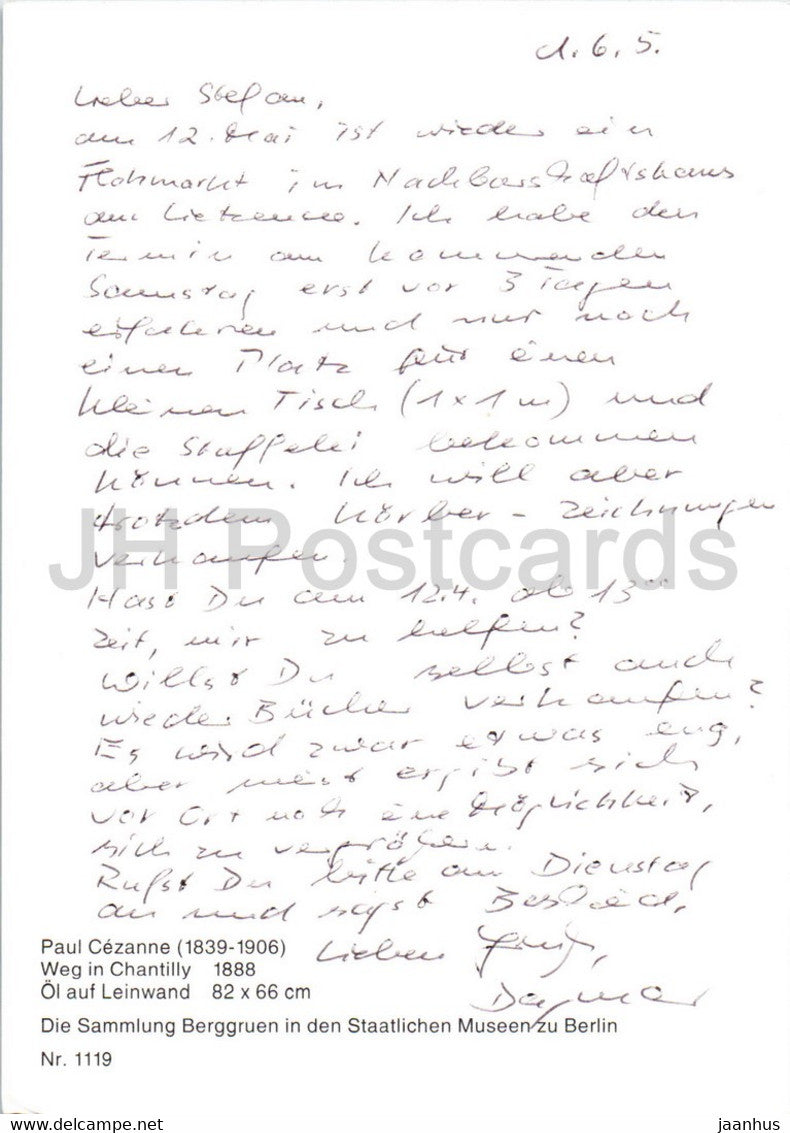 d. 6. 5.
Lieber Stefan,
am 12. Mai ist wieder ein
Flohmarkt im Nachbarschaftshaus
am Lietzensee. Ich habe den
Termin am kommenden
Samstag erst vor 3 Tagen
erfahren und nur noch
einen Platz für einen
kleinen Tisch (1 x 1 m) und
die Staffelei bekommen
können. Ich will aber
trotzdem Körber - Zeichnungen
verkaufen.
Hast Du am 12.4. ab 13⁰⁰
Zeit, mir zu helfen?
Willst Du selbst auch
wieder Bücher verkaufen?
Es wird zwar etwas eng,
aber meist ergibt sich
vor Ort noch eine Möglichkeit,
sich zu vergrößern.
Rufst Du bitte am Dienstag
an und sagst Bescheid,
Lieben Gruß,
Dagmar
Paul Cézanne (1839-1906)
Weg in Chantilly 1888
Öl auf Leinwand 82 x 66 cm
Die Sammlung Berggruen in den Staatlichen Museen zu Berlin
Nr. 1119
JH Postcards
jaanhus